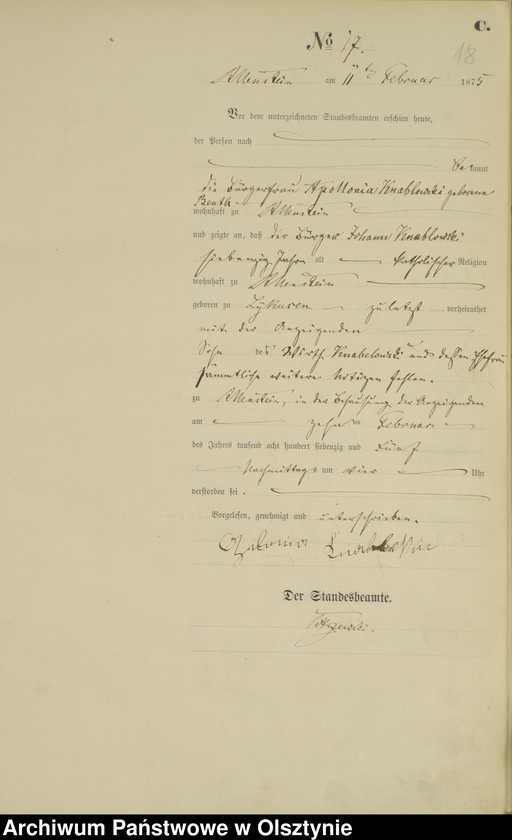 C.
No 17.
18
Allenstein am 11ten Februar 1875
Vor dem unterzeichneten Standesbeamten erschien heute,
der Person nach
bekannt
die Bürgerfrau Apollonia Knablowski geborene
wohnhaft zu Allenstein
und zeigte an, daß der Bürger Johann Knablowski
siebenzig Jahre alt katholischer Religion
wohnhaft zu Allenstein
geboren zu zuletzt verheirathet
mit der Anzeigenden
Sohn des Wirth Knabelowski und dessen Ehefrau
sämmtliche weitere Notizen fehlen.
zu Allenstein, in der Behausung der Anzeigenden
am zehnten Februar
des Jahres tausend acht hundert siebenzig und fünf
Nachmittags um vier Uhr
verstorben sei.
Vorgelesen, genehmigt und unterschrieben.
Der Standesbeamte.
Archiwum Państwowe w Olsztynie